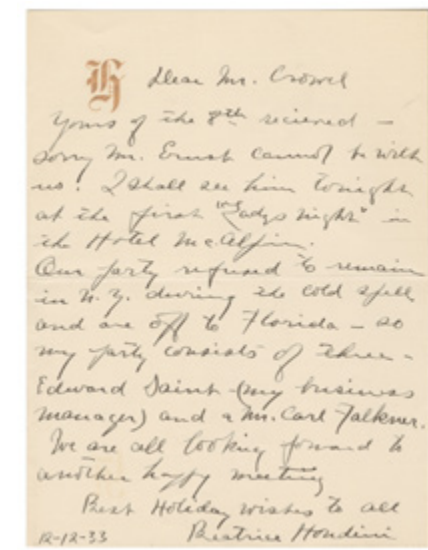 H
Dear Mr. Crowel
Yours of the 8th recieved —
sorry Mr. Ernst cannot be with
us. I shall see him tonight
at the first "Ladys night" in
the Hotel McAlpin.
Our party refused to remain
in N. Y. during the cold spell
and are off to Florida — so
my party consists of three —
Edward Saint (my business
manager) and a Mr. Carl Falkner.
We are all looking forward to
another happy meeting
Best Holiday wishes to all
12-12-33 Beatrice Houdini